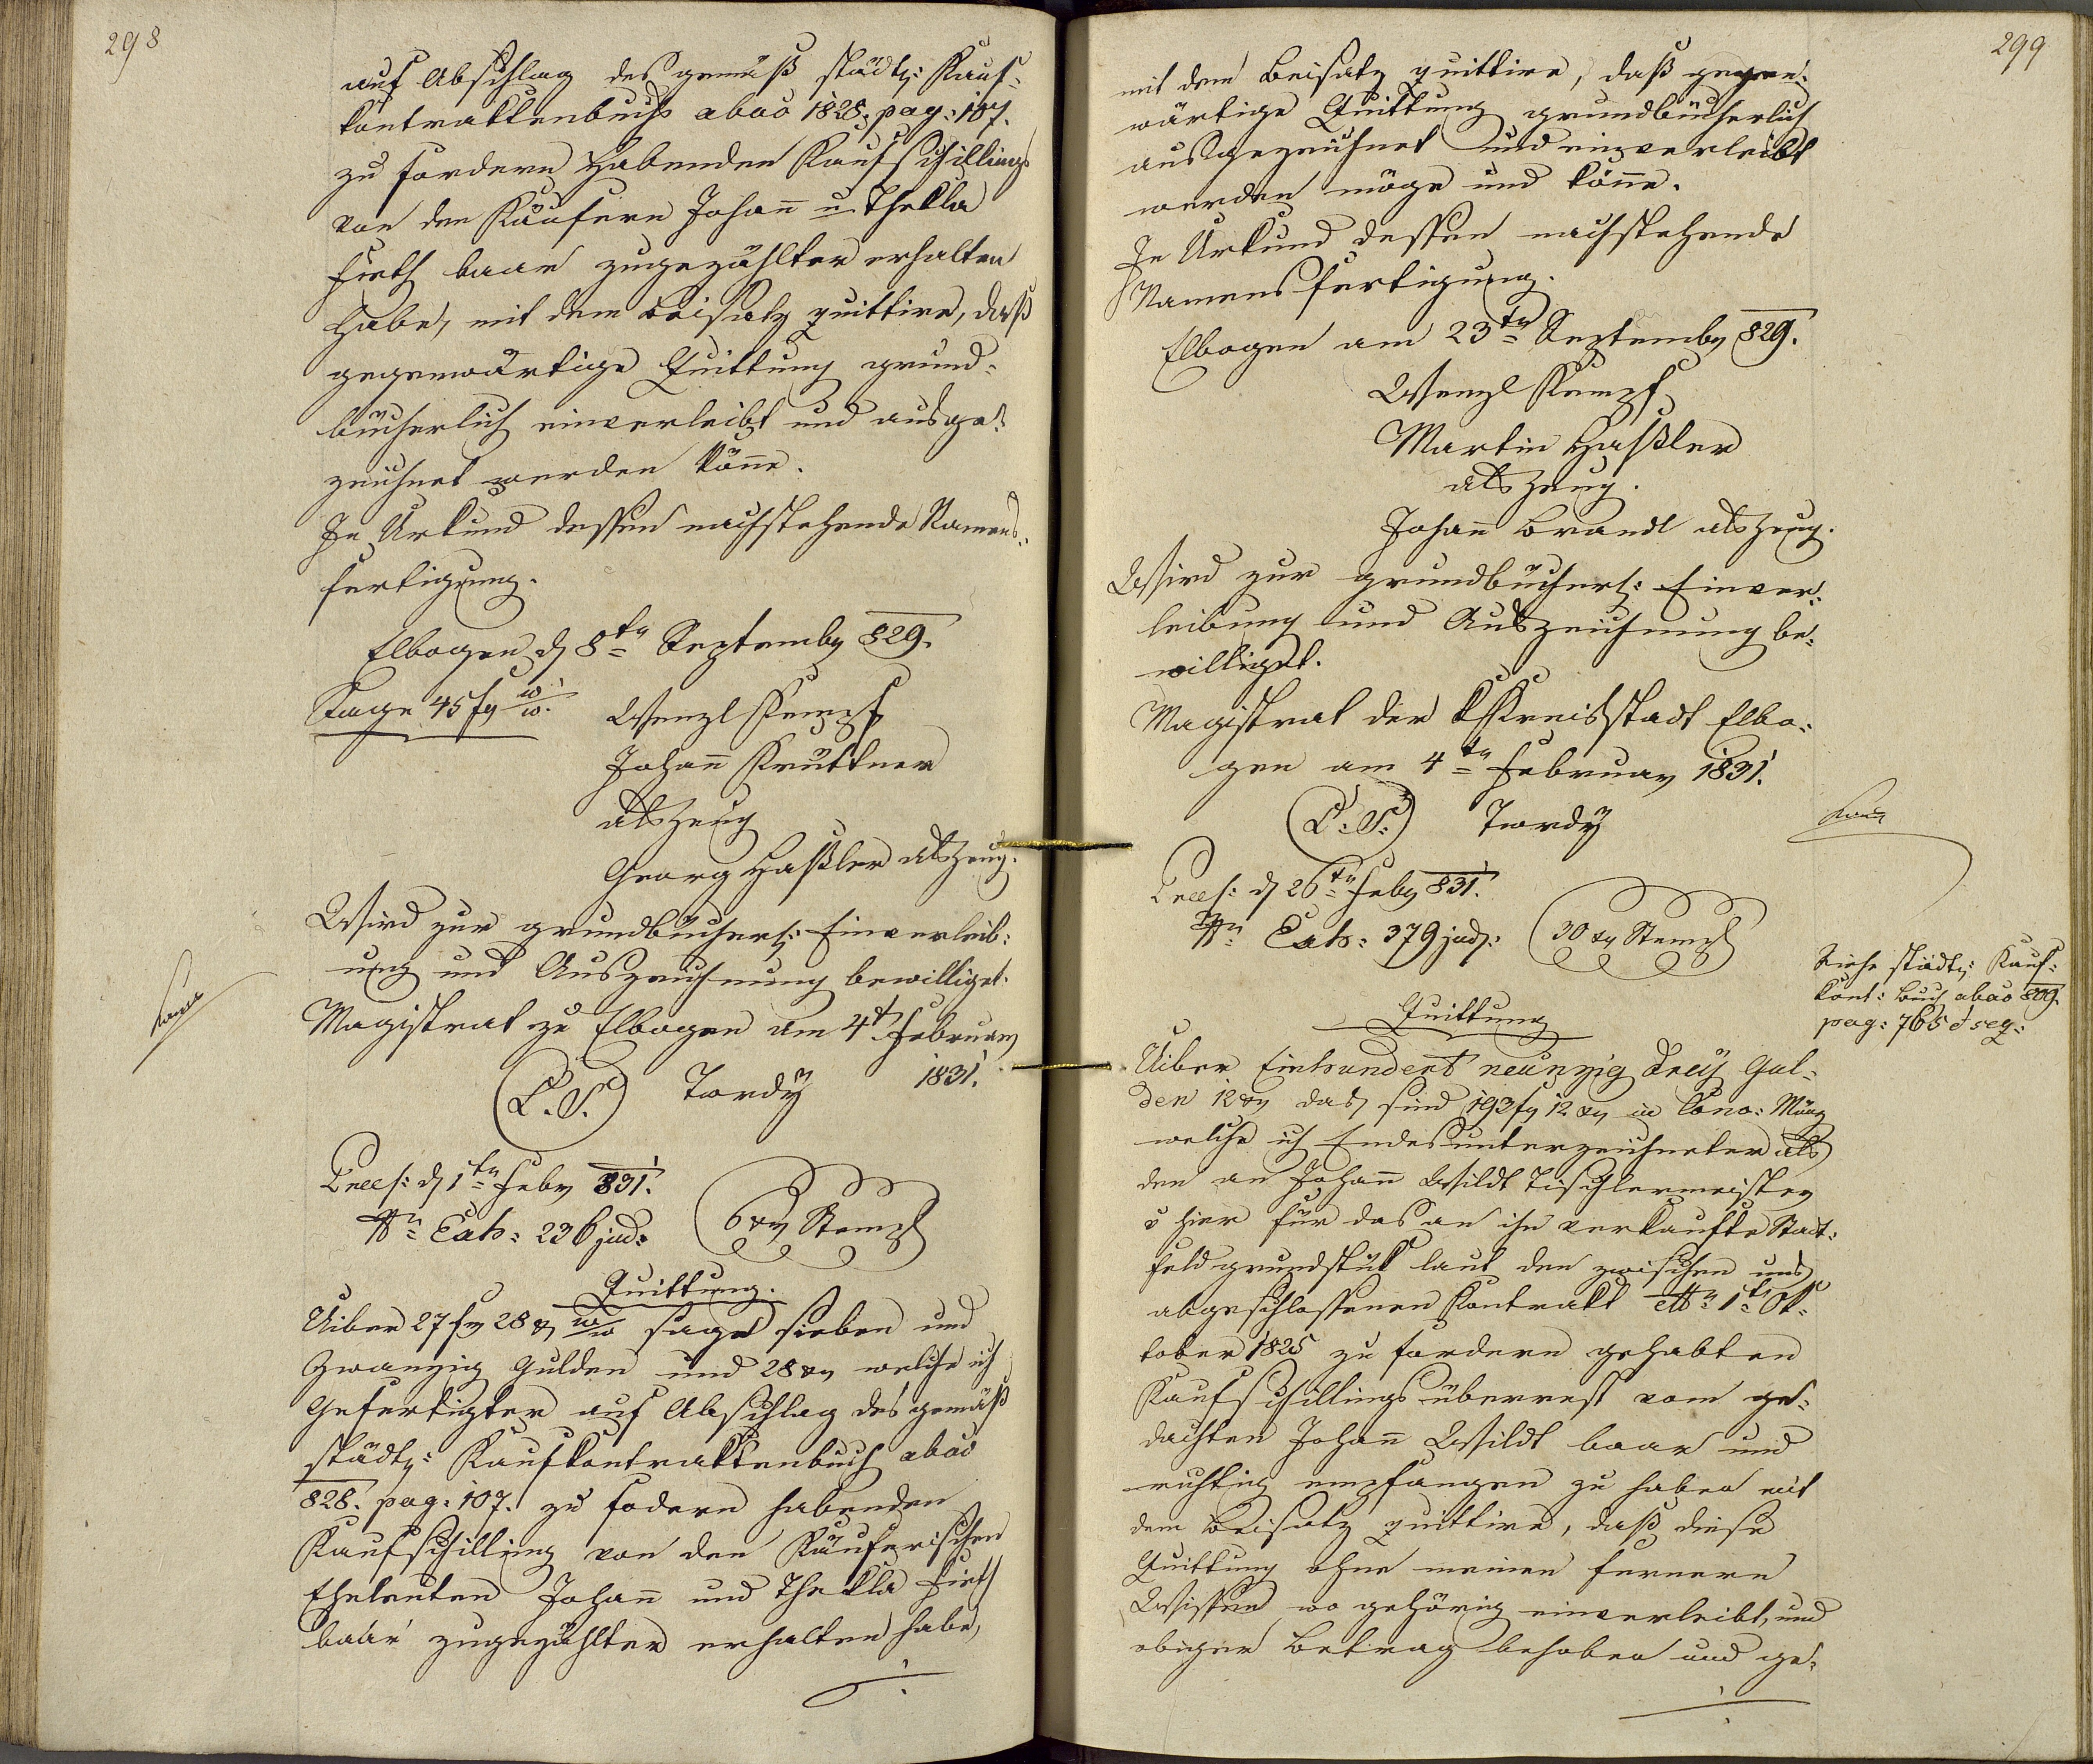 298
auf Abschlag des gemäß städt: Kauf-
kontraktenbuchs abao 1828. pag: 107.
zu fordern habenden Kaufschillings
von den Käufern Johañ u. Thekla
Fieth baar zugezählter erhalten
habe, mit dem Beisatz quittire, daß
gegenwärtige Quittung grund-
bücherlich einverleibt und ausge-
zeichnet werden köñe.
In Urkund dessen nachstehende Namens-
fertigung.
Elbogen d 8ten Septemby 829.
Sage 45 fy W.W. Wenzl Kempf
Johañ Kruttner
als Zeug
Georg Haßler als Zeug.
Wird zur grundbücherl: Einverleib-
ung und Auszeichnung bewilliget.
Magistrat zu Elbogen am 4t Februar
1831.
(L. S.) Tordÿ
Praes: d 1ten Feby 831.
Nr. Exh: 236 jud: 6 xr Stempl
Quittung.
Uiber 27 fy 28 x W.W. sage sieben und
zwanzig Gulden und 28 xr welche ich
Gefertigter auf Abschlag des gemäß
städt: Kaufkontraktenbuch abao
828. pag: 107. zu fodern habenden
Kaufschilling von den Käuferischen
Eheleuten Johañ und Thekla Fieth
baar zugezählter erhalten habe,
299
mit dem Beisatz quittire, daß gegen-
wärtige Quittung grundbücherlich
ausgezeichnet und einverleibt
werden möge und köñe.
In Urkund dessen nachstehende
Namensfertigung.
Elbogen am 23ten Septemby 829.
Wenzl Kempf
Martin Haßler
als Zeug.
Johañ Brandl als Zeug.
Wird zur grundbücherl: Einver-
leibung und Auszeichnung be-
williget.
Magistrat der K Kreisstadt Elbo-
gen am 4ten Februar 1831.
(L. S.) Tordÿ
Praes: d 26ten Feby 831.
Nr. Exh: 379 jud: 30 xr Stempl
Siehe städt: Kauf-
kont: Buch abao 809.
pag: 765 et seq:
Quittung
Uiber Einhundert neunzig dreÿ Gul-
den 12 xr das sind 193 fy 12 xr in Conv: Münz
welche ich Endesunterzeichneter als
den an Johañ Wildt Tischlermeister
hier für das an ihn verkaufte Stadt-
feldgrundstük laut den zwischen uns
abgeschlossenen Kontrakt dto 1t Ok-
tober 1825 zu fordern gehabten
Kaufschillingsüberrest vom ge-
dachten Johañ Wildt baar und
richtig empfangen zu haben mit
dem Beisatz quittire, daß diese
Quittung ohne meinen fernern
Wissen wo gehörig einverleibt, und
obiger Betrag behoben und ge-